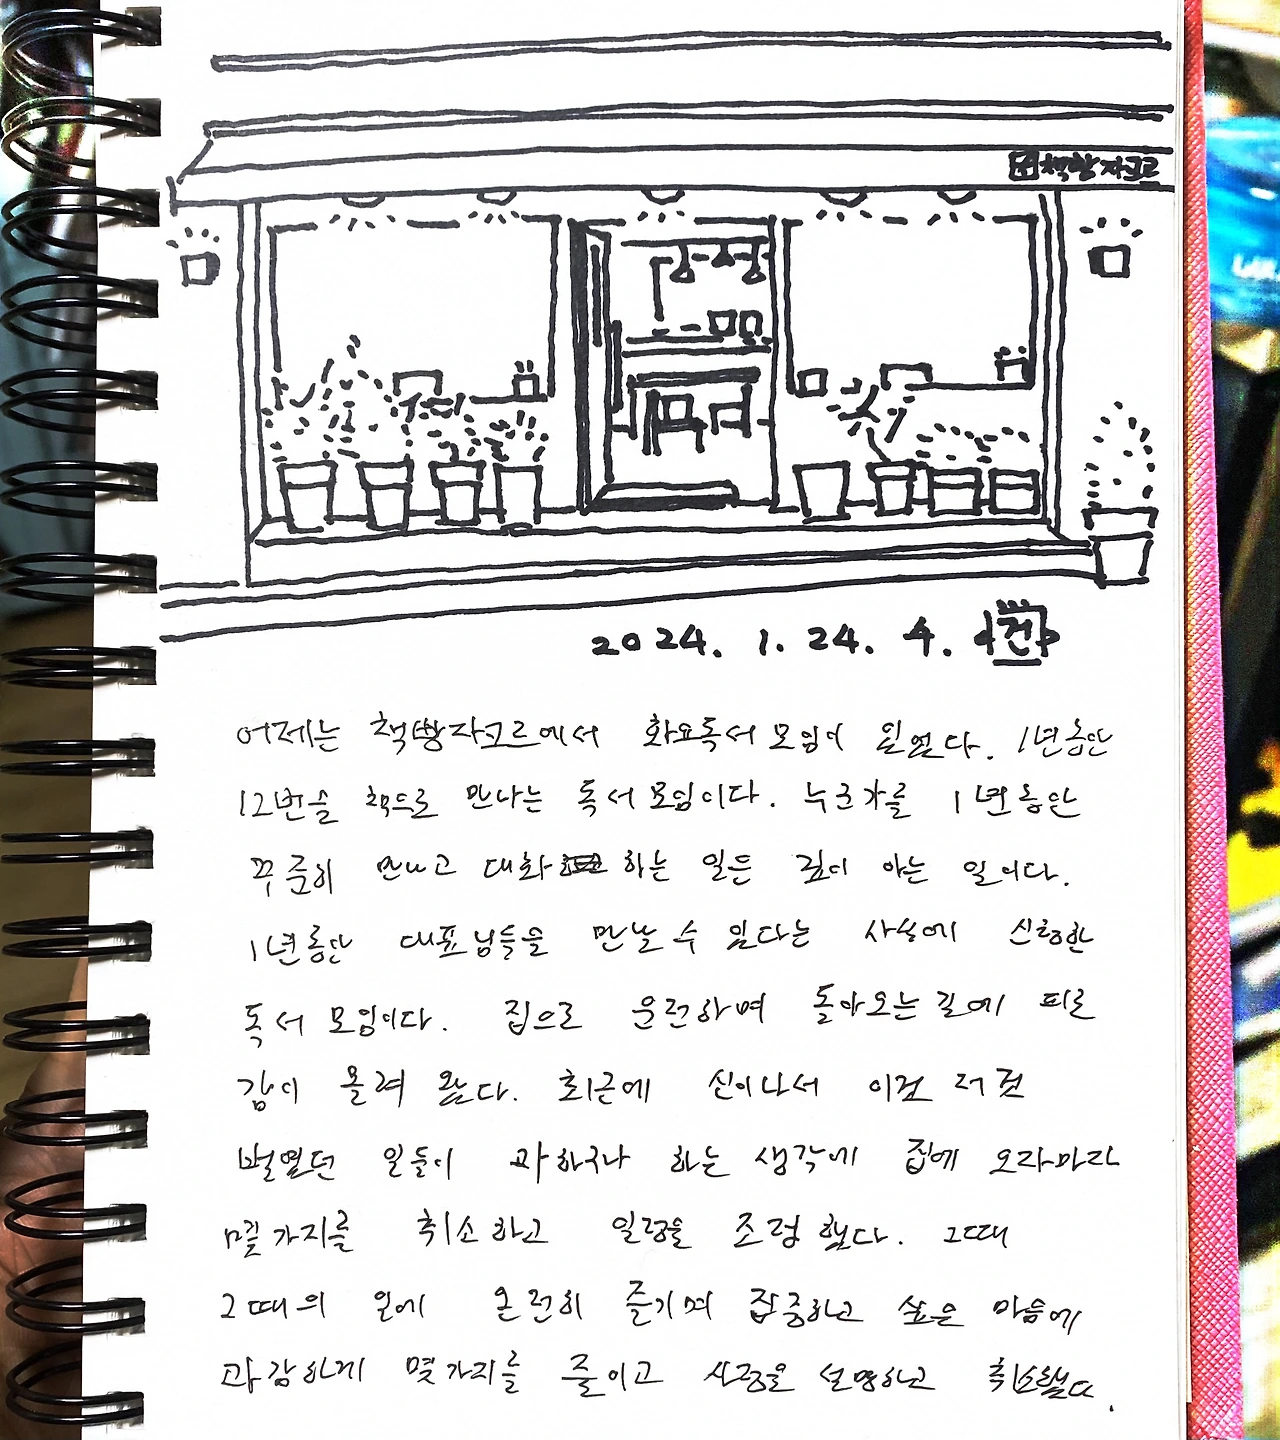 책방 자크르
2024. 1. 24. 수. 건
어제는 책방자크르에서 화요독서모임이 있었다. 1년동안
12번을 책으로 만나는 독서모임이다. 누군가를 1년동안
꾸준히 만나고 대화 하는 일은 깊이 아는 일이다.
1년동안 대표님들을 만날 수 있다는 사실에 신청한
독서모임이다. 집으로 운전하며 돌아오는길에 피로
감이 몰려 왔다. 최근에 신이나서 이것 저것
벌였던 일들이 과하구나 하는 생각에 집에 오자마자
몇가지를 취소하고 일정을 조정했다. 그때
그때의 일에 온전히 즐기며 집중하고 싶은 마음에
과감하게 몇가지를 줄이고 사정을 설명하고 취소했다.